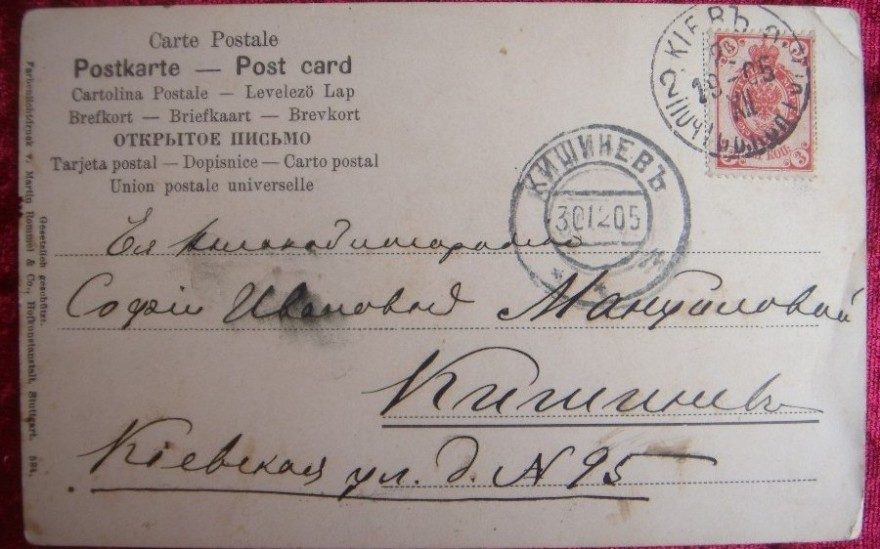 Carte Postale
Postkarte — Post card
Cartolina Postale – Levelező Lap
Brefkort – Briefkaart – Brevkort
ОТКРЫТОЕ ПИСЬМО
Tarjeta postal — Dopisnice — Carto postal
Union postale universelle
КІЕВЪ 2
19-05
XII
3 КОП. 3
КИШИНЕВЪ
301205
Ея Высокоблагородію
Софіи Ивановнѣ Мануйловой
Кишиневъ
Кіевская ул. д. N 95
Gesetzlich geschützt.
Farbenlichtdruck v. Martin Rommel & Co., Hofkunstanstalt, Stuttgart. 584.